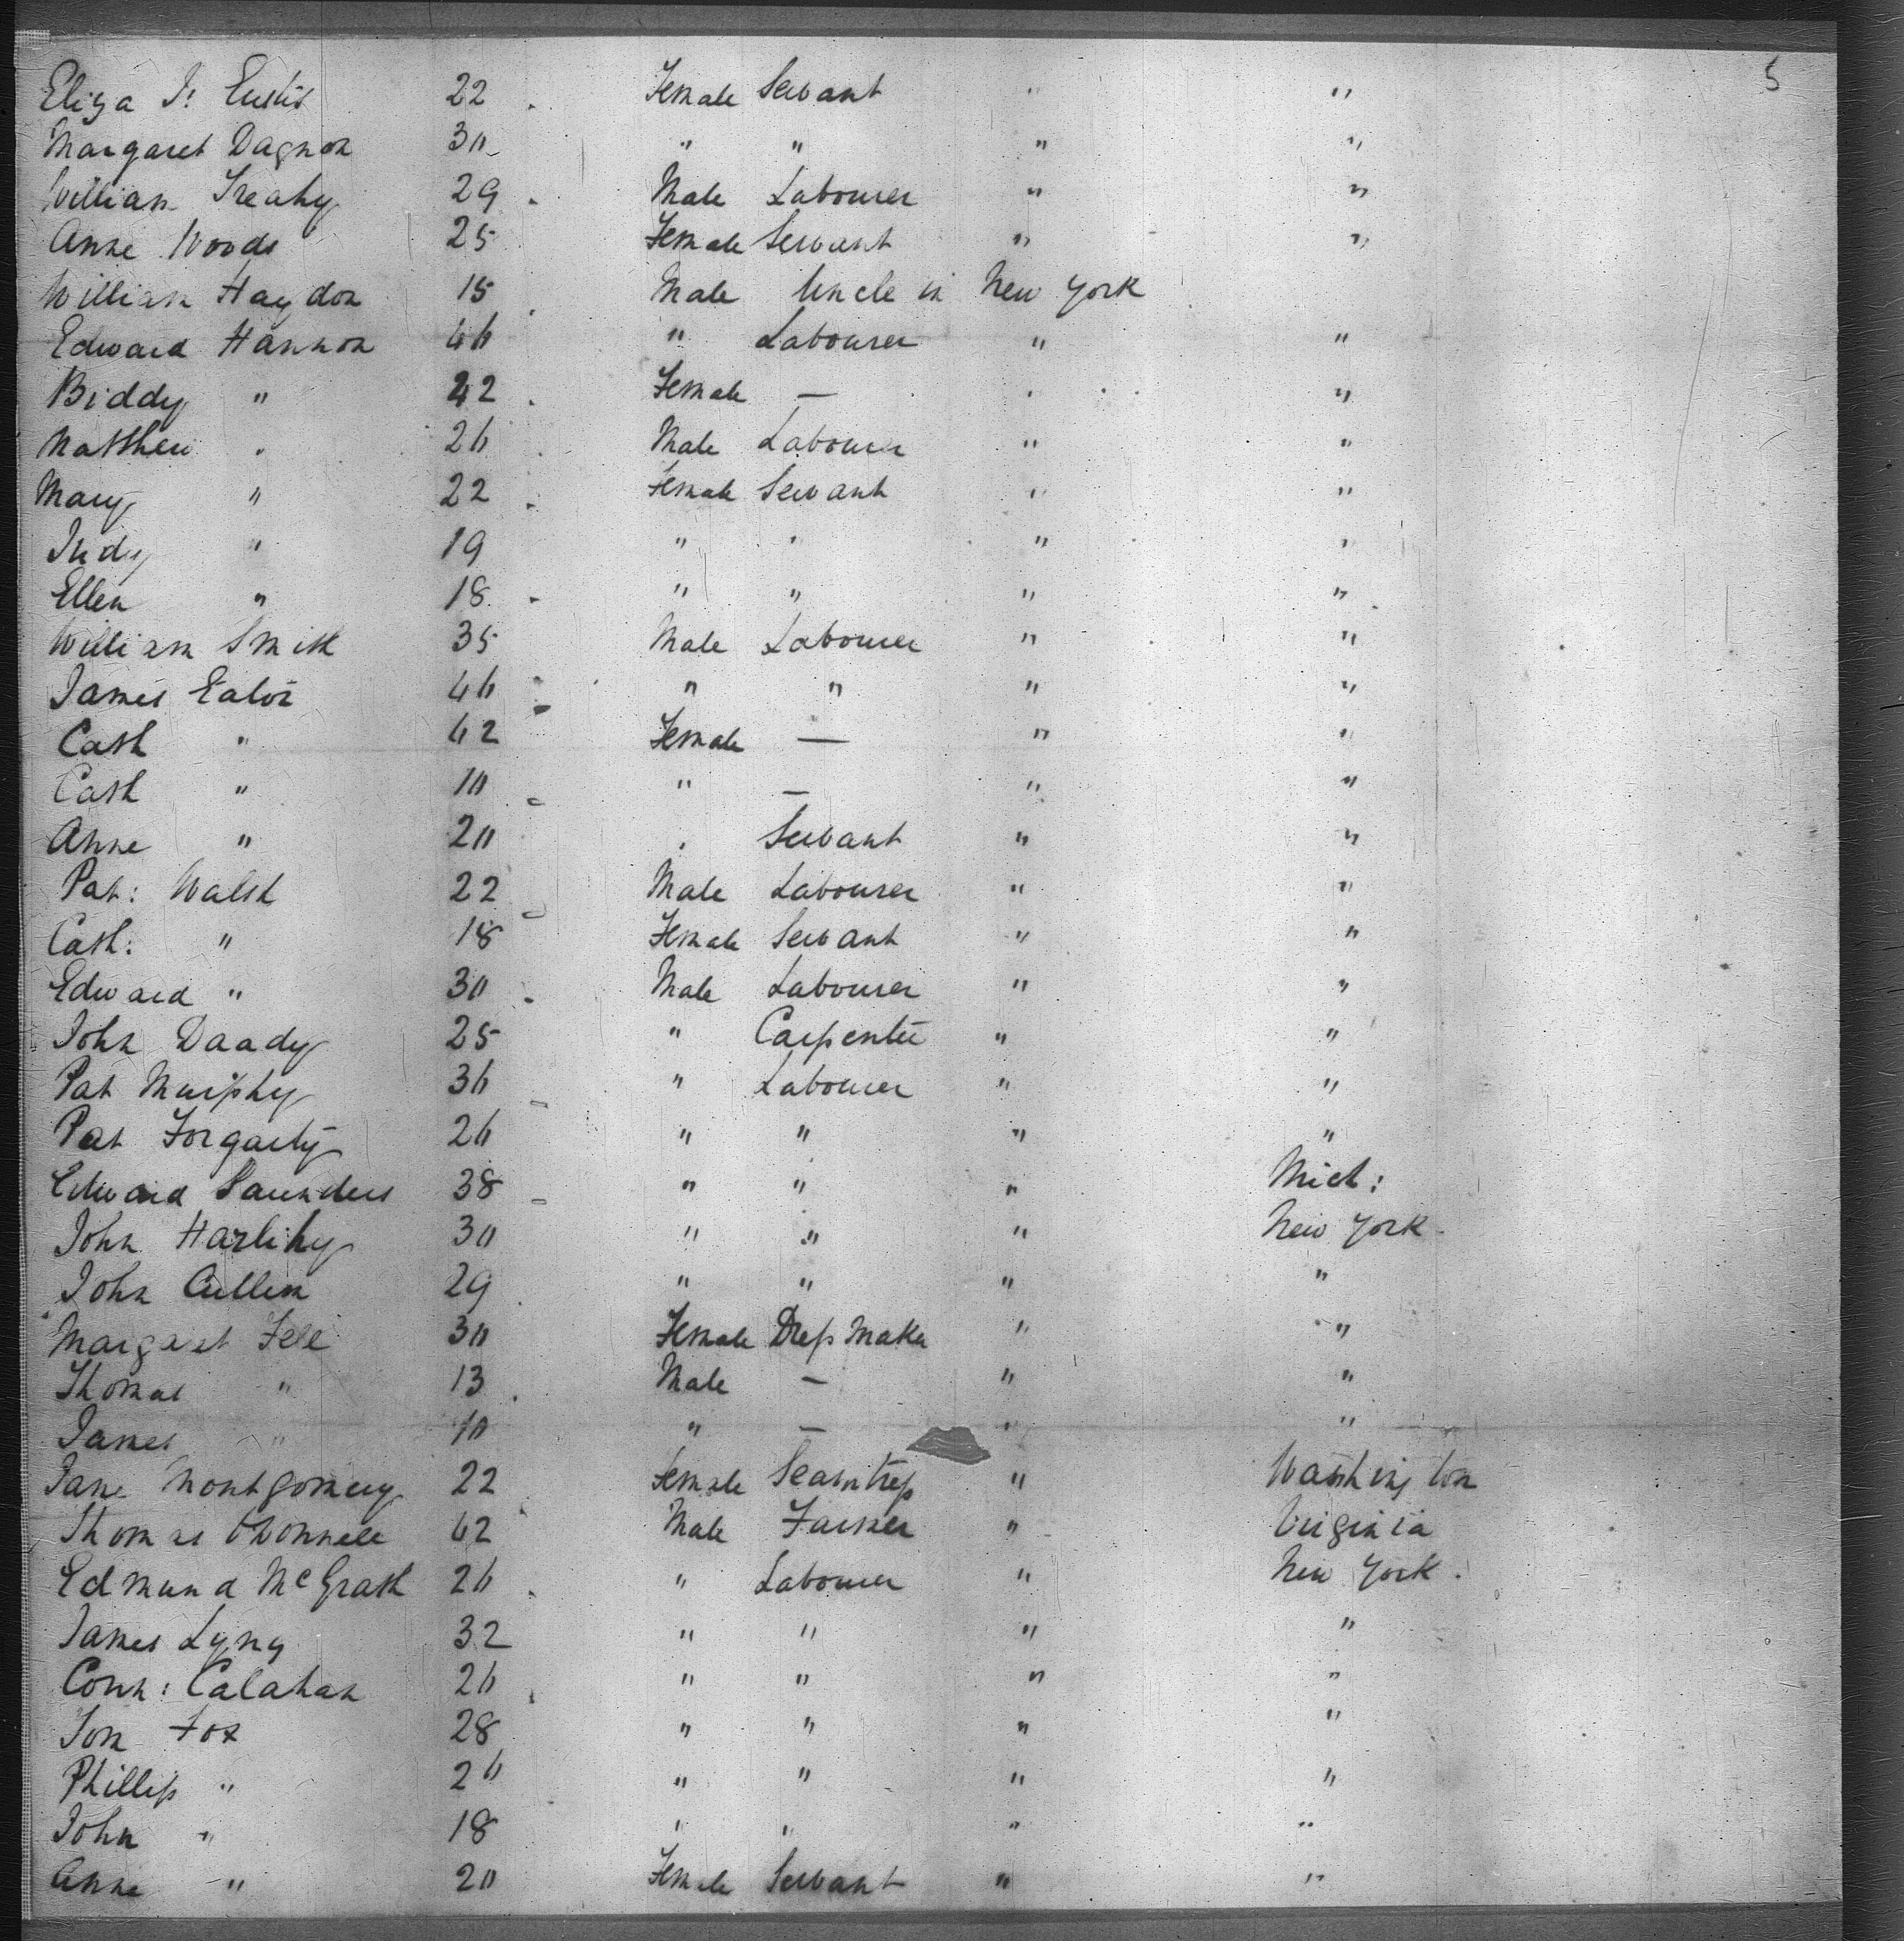 5
Eliza J: Eustis 22 Female Servant " "
Margaret Dagnon 30 " " " "
William Treahy 29 Male Labourer " "
Anne Woods 25 Female Servant " "
William Haydon 15 Male Uncle in New York
Edward Hannon 46 " Labourer " "
Biddy " 42 Female — " "
Matthew " 26 Male Labourer " "
Mary " 22 Female Servant " "
Judy " 19 " " " "
Ellen " 18 " " " "
William Smith 35 Male Labourer " "
James Eaton 46 " " " "
Cath " 42 Female — " "
Cath " 10 " — " "
Anne " 20 " Servant " "
Pat: Walsh 22 Male Labourer " "
Cath: " 18 Female Servant " "
Edward " 30 Male Labourer " "
John Daady 25 " Carpenter " "
Pat Murphy 36 " Labourer " "
Pat Forgarty 26 " " " "
Edward Saunders 38 " " " Mich:
John Harlihy 30 " " " New York
John Cullen 29 " " " "
Margaret Fell 30 Female Dress Maker " "
Thomas " 13 Male — " "
James " 10 " — " "
Jane Montgomery 22 Female Seamtress " Washington
Thomas O'Donnell 42 Male Farmer " Virginia
Edmund McGrath 26 " Labourer " New York.
James Lyng 32 " " " "
Conn: Calahan 26 " " " "
Tom Fox 28 " " " "
Phillip " 26 " " " "
John " 18 " " " "
Anne " 20 Female Servant " "